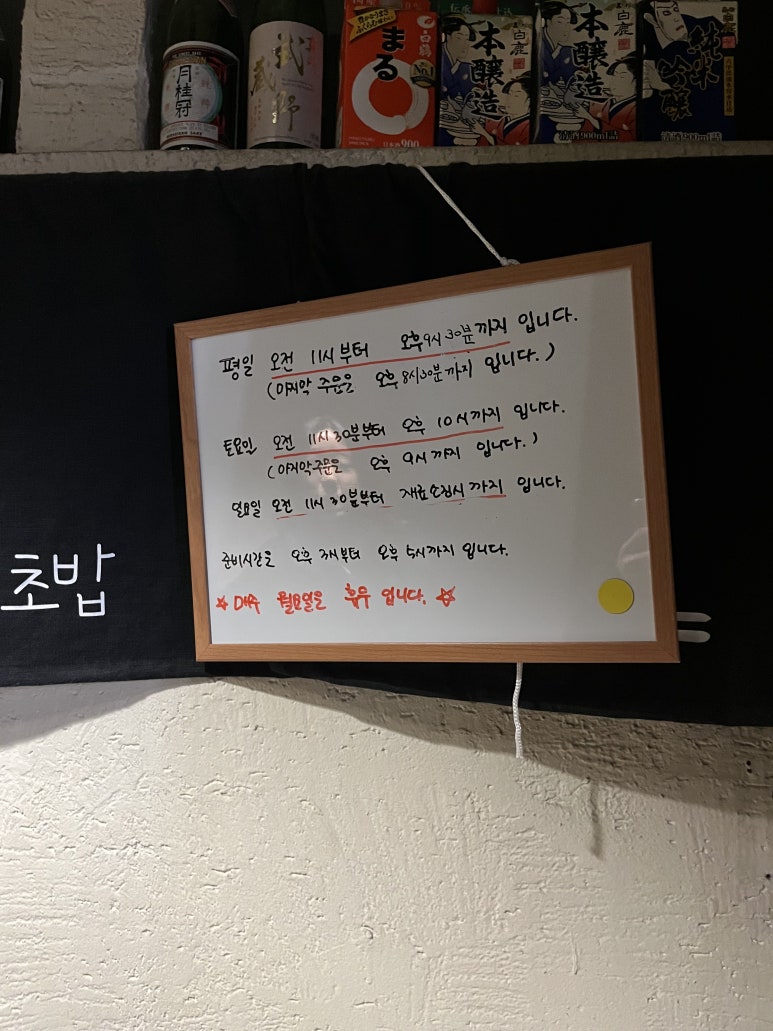 月桂冠
武蔵野
白鶴
まる
No.1
白鹿
本醸造
清酒900ml詰
白鹿
本醸造
清酒900ml詰
純米吟醸
평일 오전 11시부터 오후9시30분까지 입니다.
(마지막 주문은 오후8시30분까지 입니다.)
토요일 오전 11시30분부터 오후 10시까지 입니다.
(마지막주문은 오후 9시까지 입니다.)
일요일 오전 11시30분부터 재료소진시 까지 입니다.
준비시간은 오후 3시부터 오후 5시까지 입니다.
☆ 매주 월요일은 휴무 입니다. ☆
초밥